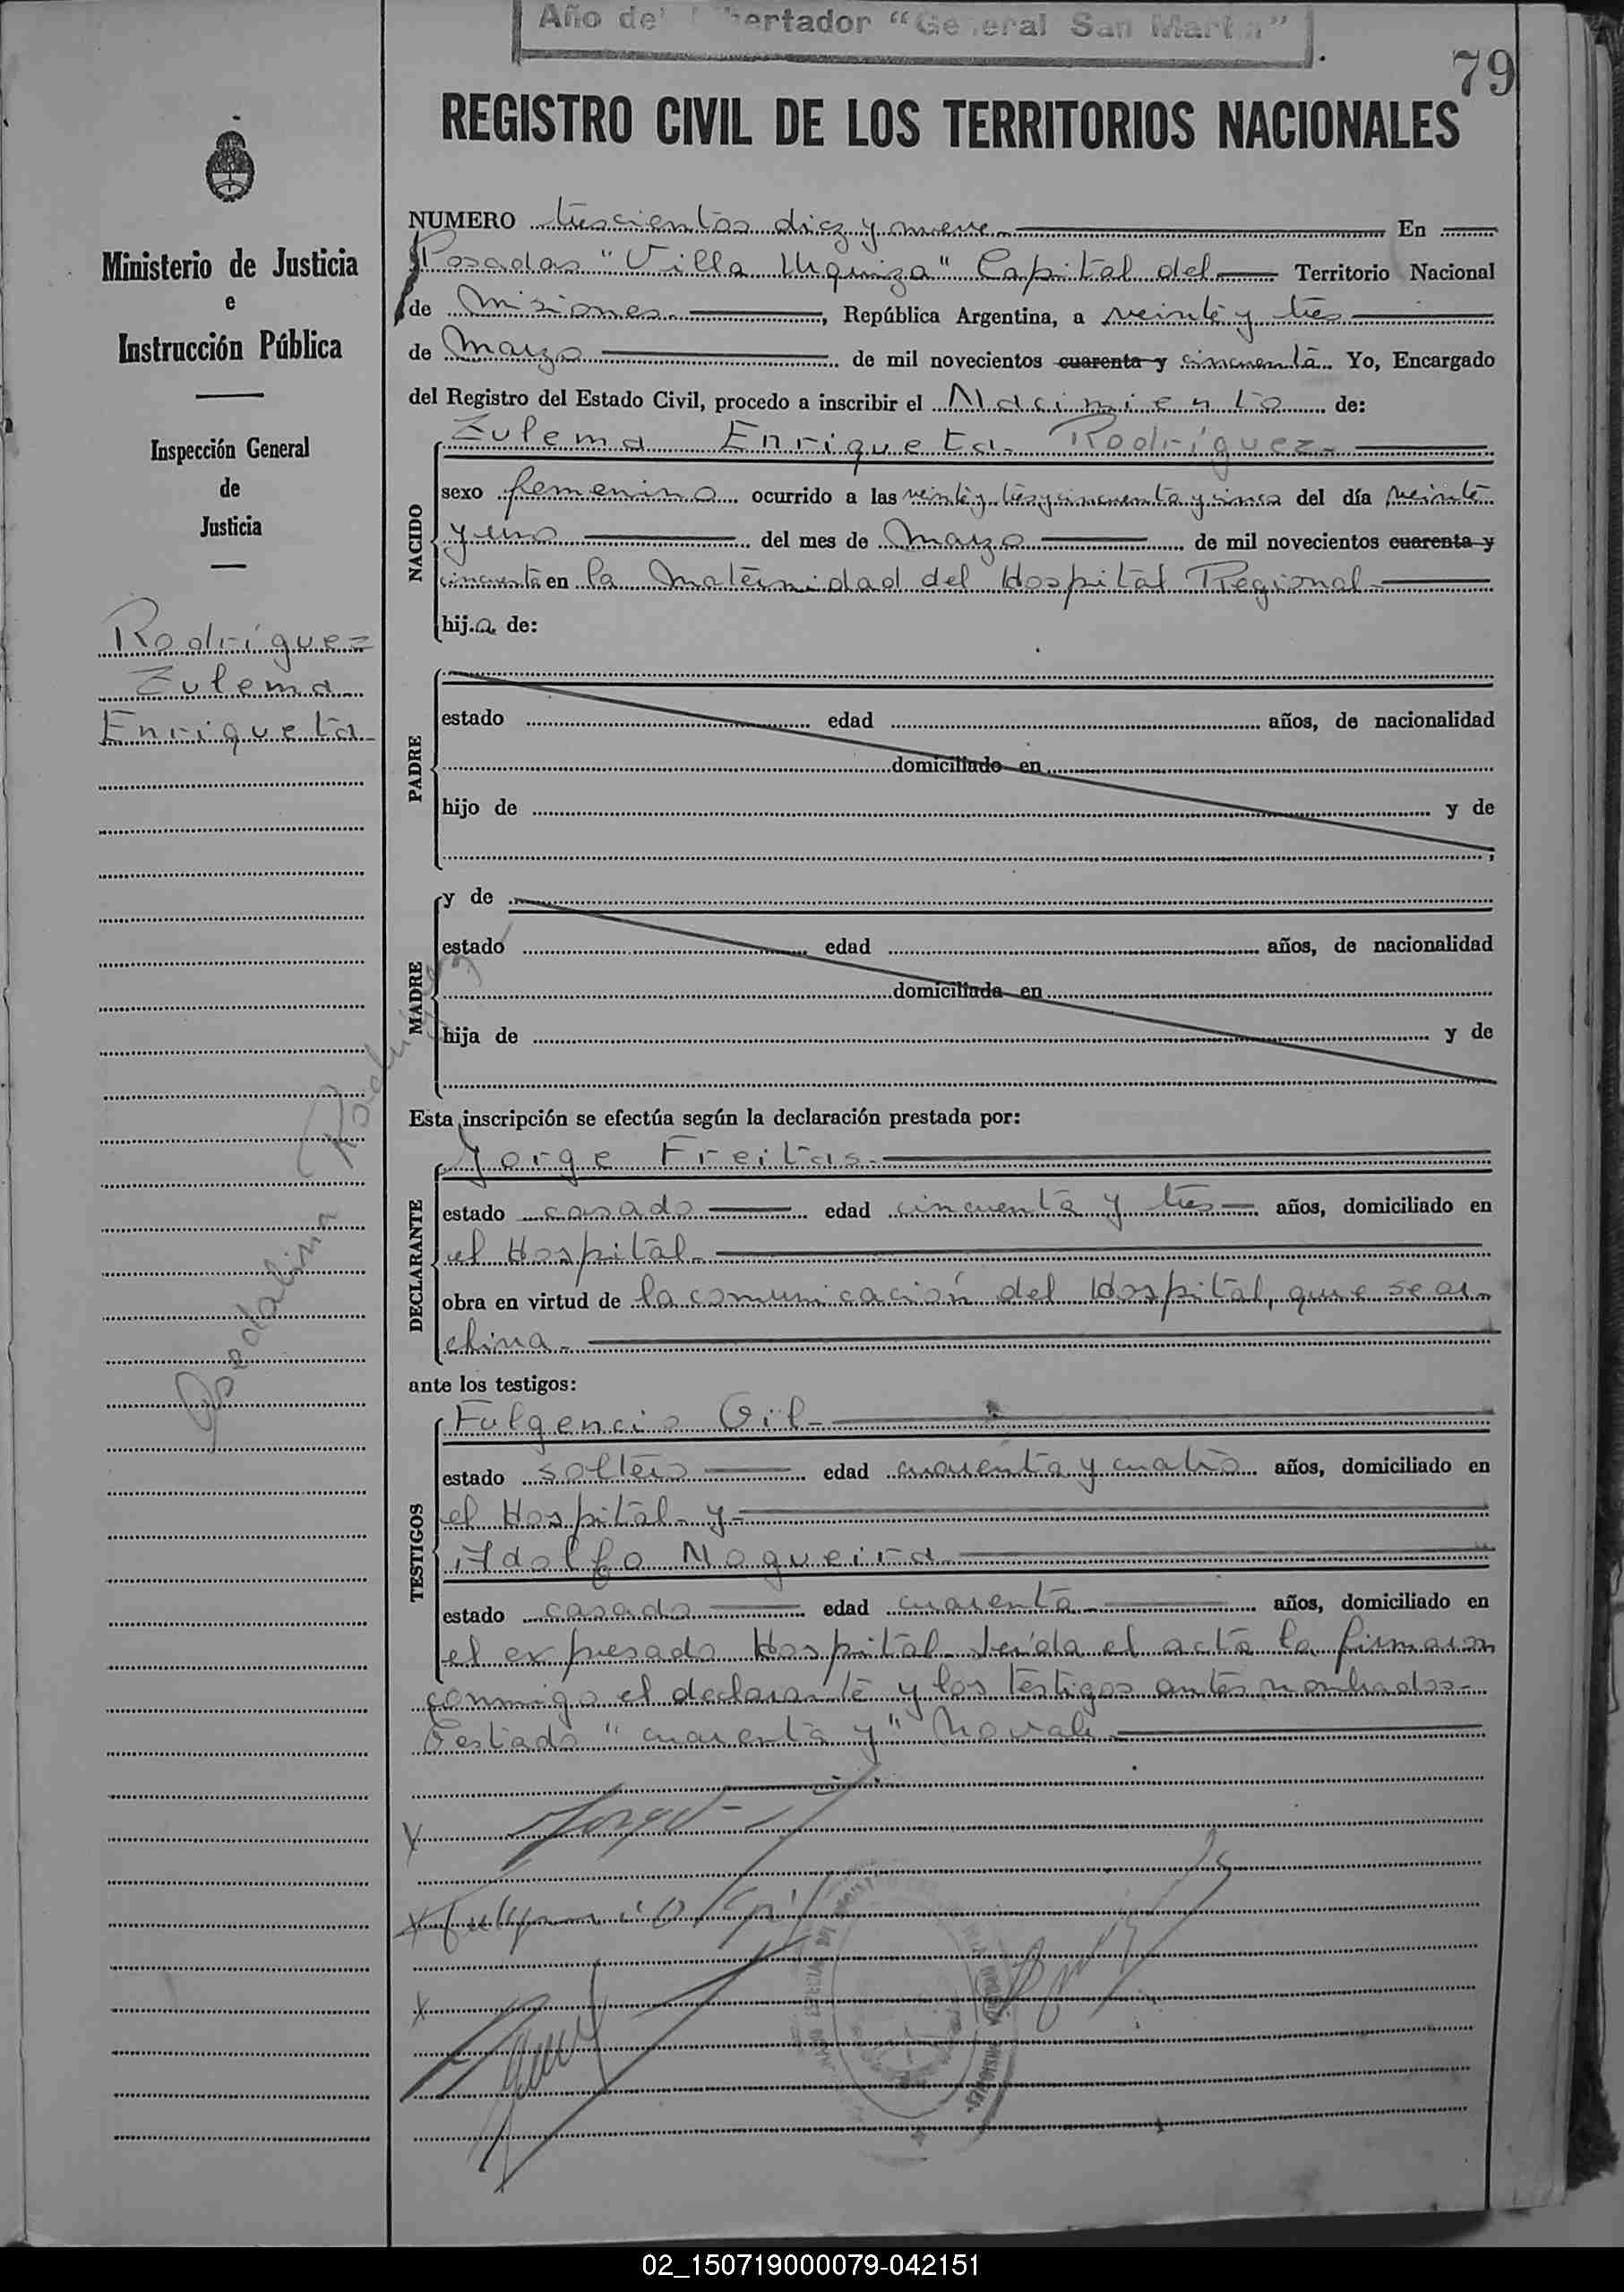 Año del Libertador "General San Martín"
79
REGISTRO CIVIL DE LOS TERRITORIOS NACIONALES
Ministerio de Justicia
e
Instrucción Pública
Inspección General
de
Justicia
Rodríguez
Zulema
Enriqueta
Rodríguez
NUMERO trescientos diez y nueve En
Posadas "Villa Urquiza" Capital del Territorio Nacional
de Misiones, República Argentina, a veinte y tres
de Marzo de mil novecientos cuarenta y cincuenta Yo, Encargado
del Registro del Estado Civil, procedo a inscribir el Nacimiento de:
NACIDO
Zulema Enriqueta Rodríguez
sexo femenino ocurrido a las veinte y tres y cincuenta y cinco del día veinte
y uno del mes de Marzo de mil novecientos cuarenta y
cincuenta en la Maternidad del Hospital Regional
hija de:
PADRE
estado edad años, de nacionalidad
domiciliado en
hijo de y de
MADRE
y de
estado edad años, de nacionalidad
domiciliada en
hija de y de
Esta inscripción se efectúa según la declaración prestada por:
DECLARANTE
Jorge Freitas
estado casado edad cincuenta y tres años, domiciliado en
el Hospital
obra en virtud de la comunicación del Hospital, que se ar-
chiva
ante los testigos:
TESTIGOS
Fulgencio Gil
estado soltero edad cuarenta y cuatro años, domiciliado en
el Hospital y
Adolfo Nogueira
estado casado edad cuarenta años, domiciliado en
el expresado Hospital. Leída el acta la firmaron
conmigo el declarante y los testigos antes nombrados
Testado "cuarenta y" No vale
02_150719000079-042151